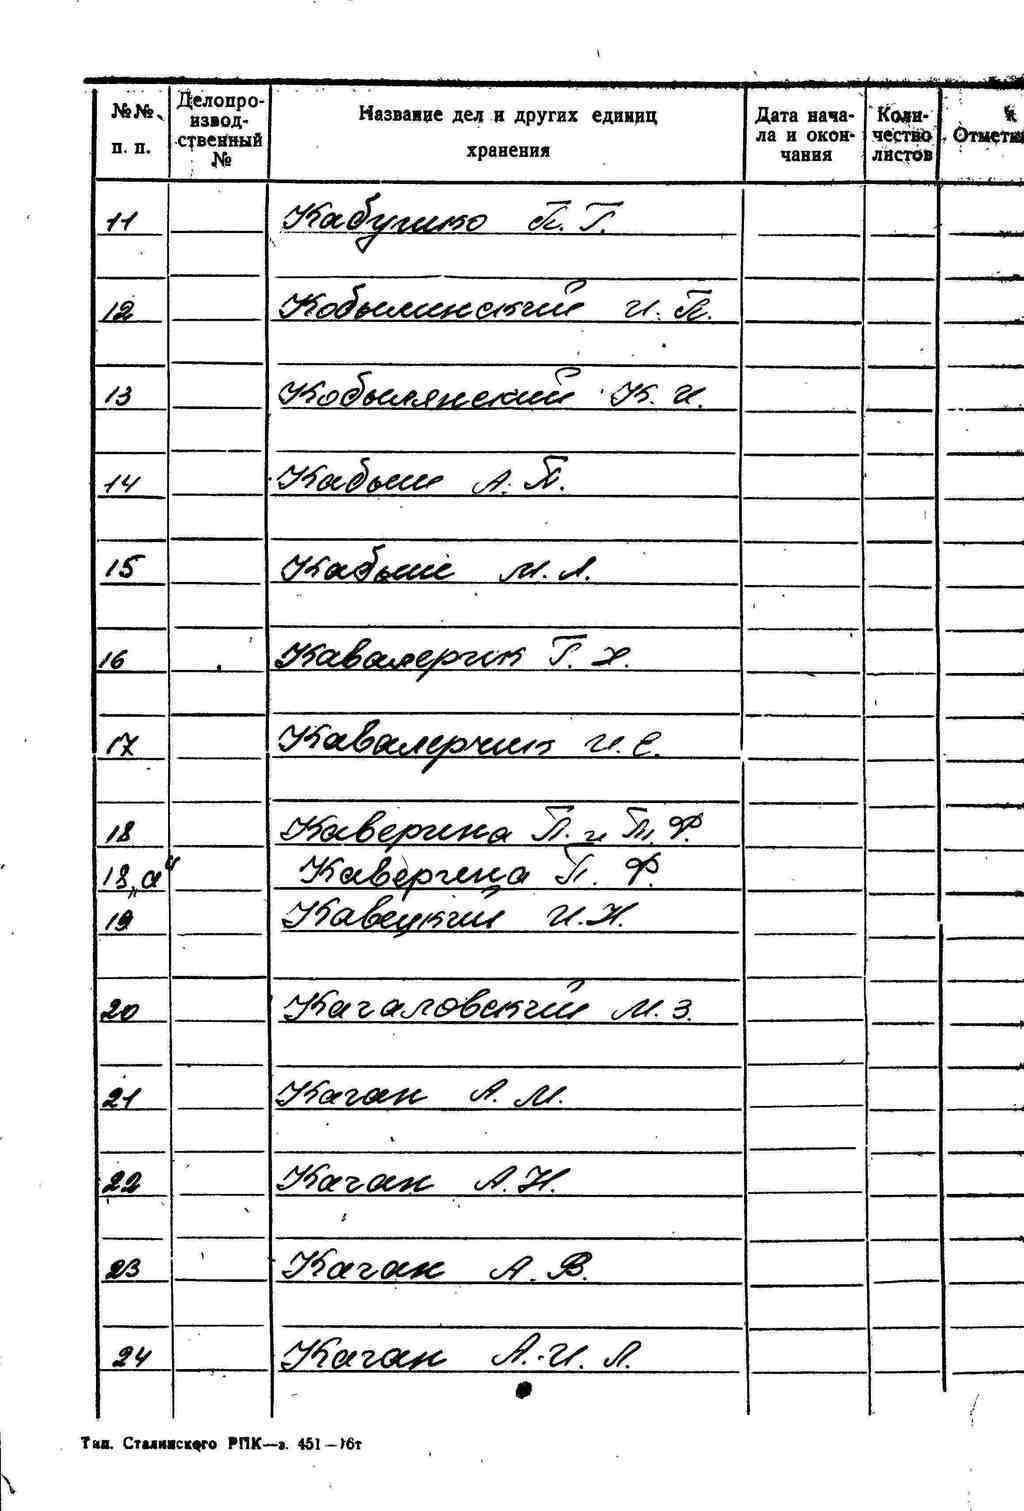 №№ п. п. Делопроизводственный № Название дел и других единиц хранения Дата начала и окончания Количество листов Отметки
11 Кабушко П. Г.
12 Кобылинский И. П.
13 Кобылянский К. И.
14 Кабыш А. П.
15 Кабыш М. Л.
16 Кавалерчик Г. Х.
17 Кавалерчик И. Е.
18 Каверина П. и М. Ф.
18 „а“ Каверина П. Ф.
19 Кавецкий И. Н.
20 Кагаловский М. З.
21 Каган А. М.
22 Каган А. Н.
23 Каган А. В.
24 Каган А. И. Л.
Тип. Сталинского РПК—з. 451—16т